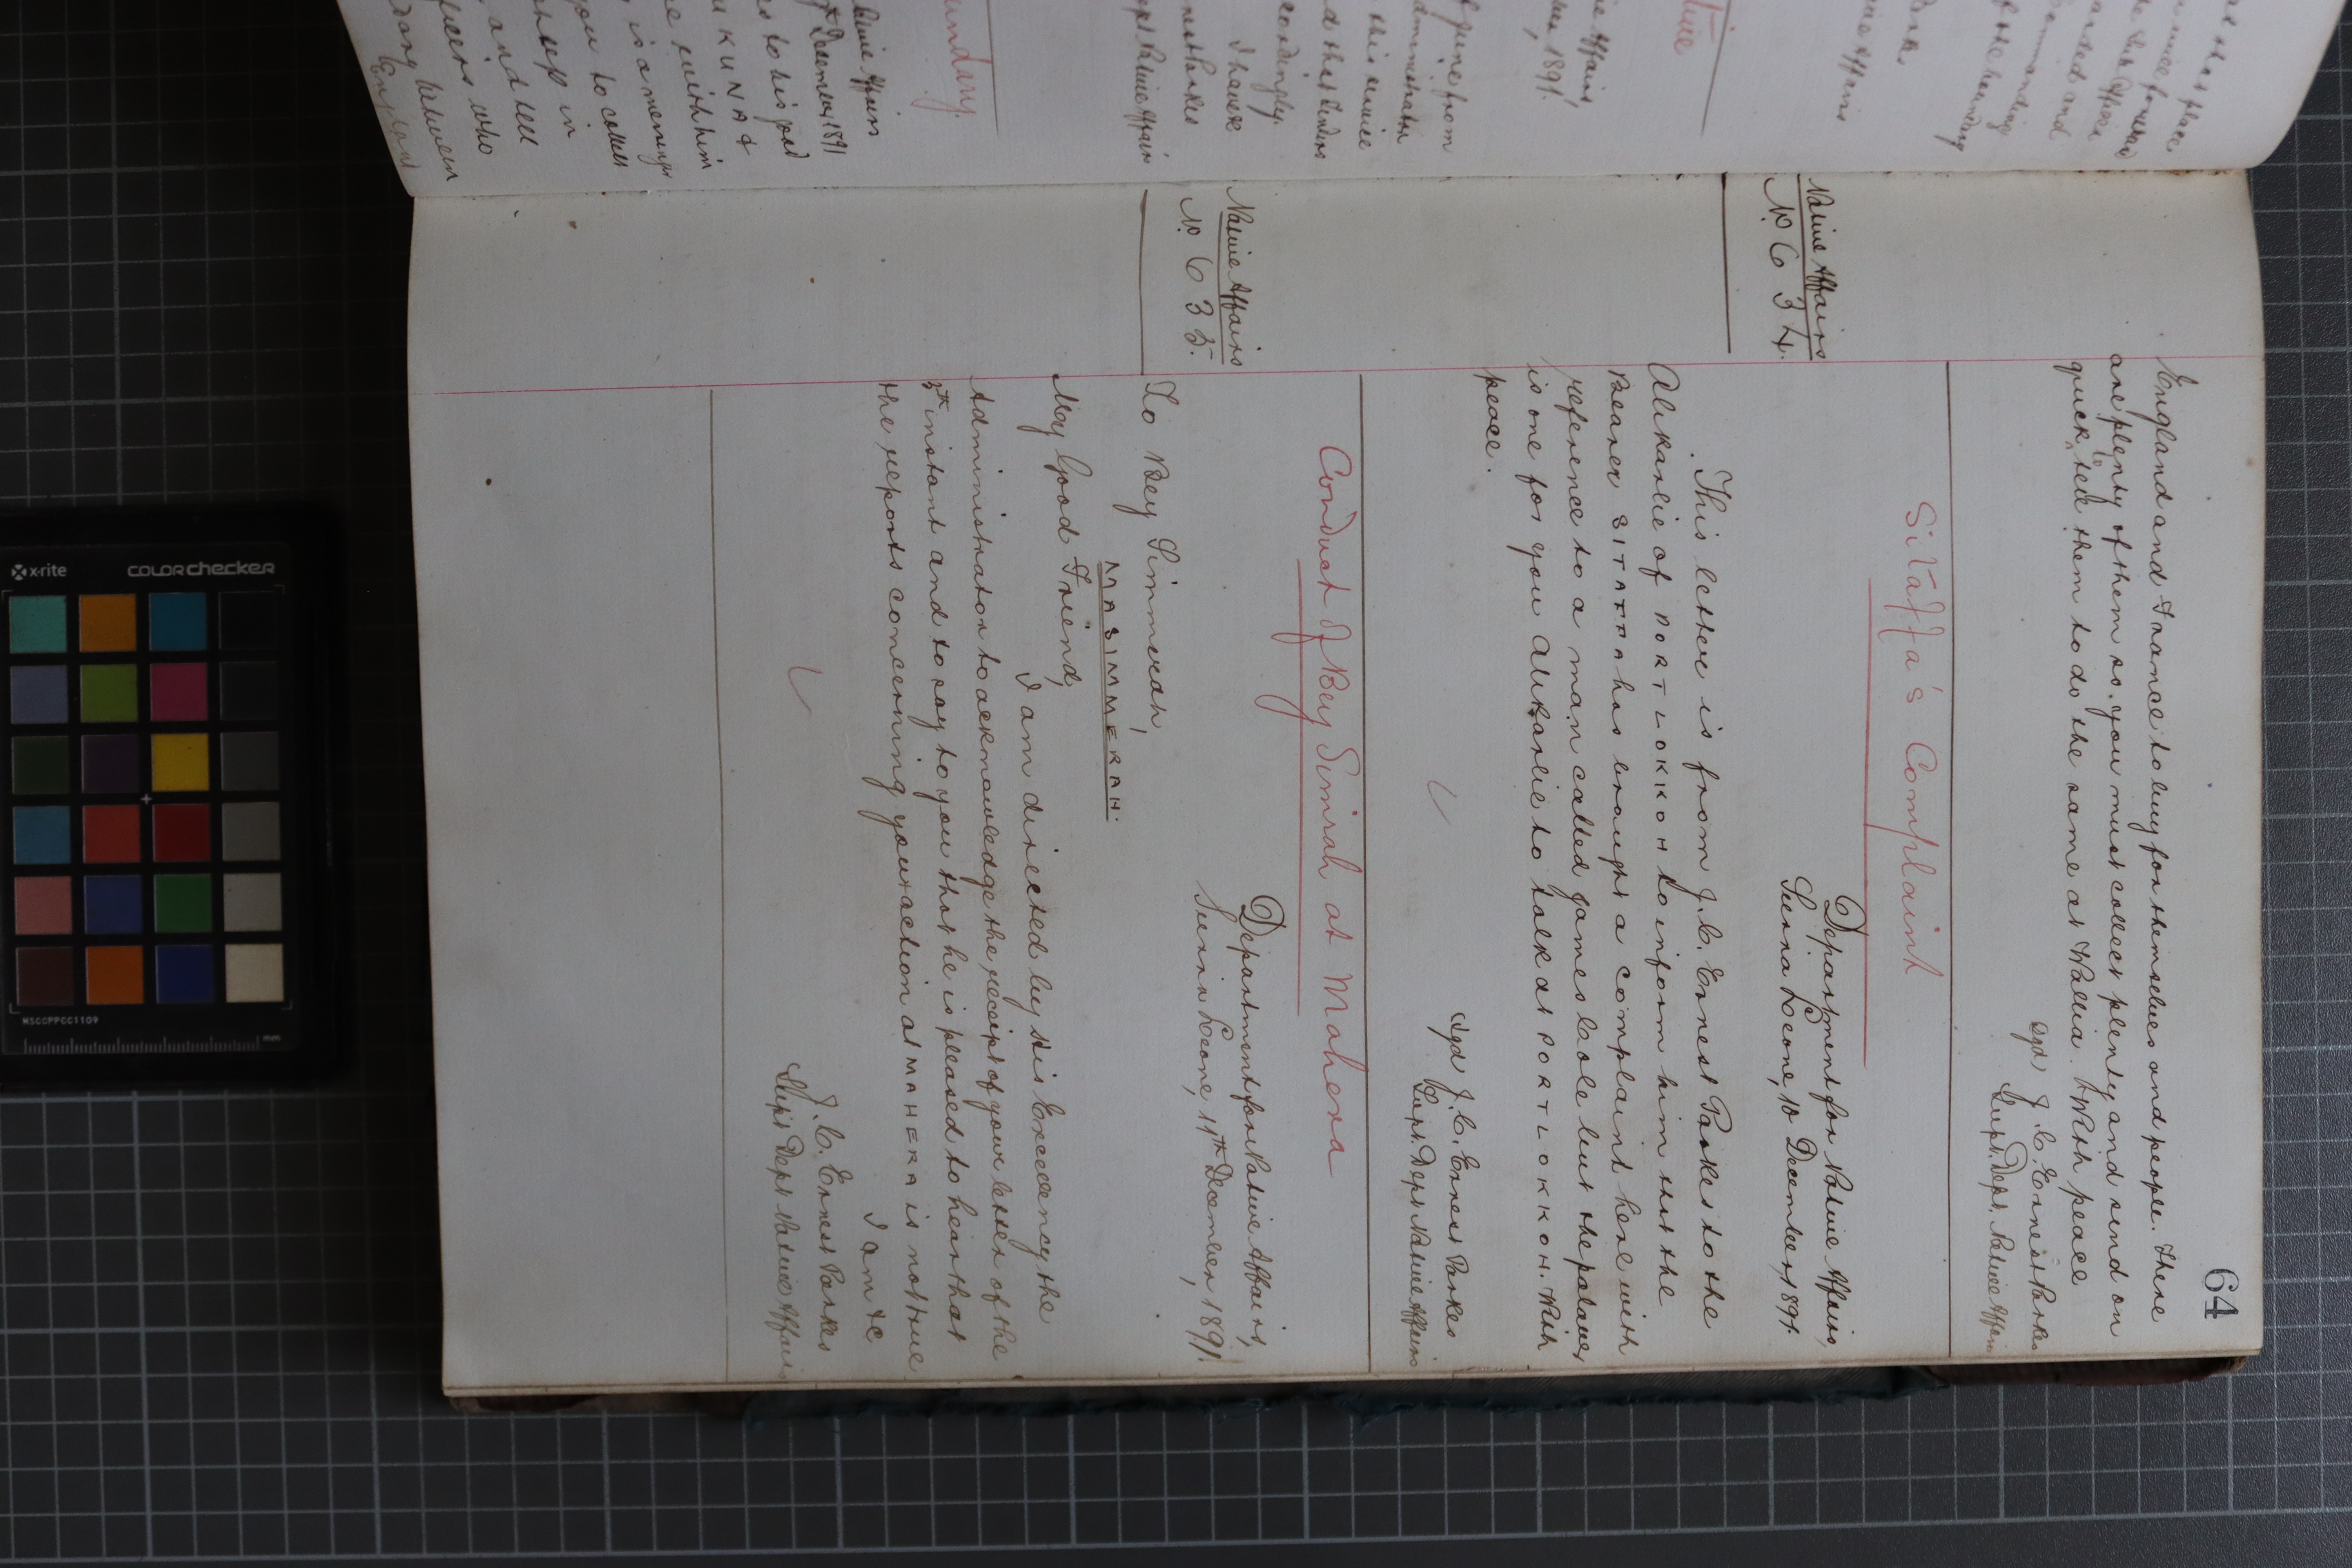 64
England and France to buy for themselves and people. There
are plenty of them so you must collect plenty and send on
quick to tell them to do the same at Wallia. With peace
Sgd J. C. Ernest Parkes
Supt. Dept. Native Affairs
Sitaffa's Complaint
Native Affairs
No. 634.
Department for Native Affairs,
Sierra Leone, 10 December, 1891.
This letter is from J. C. Ernest Parkes to the
Alikarlie of PORT LOKKOH to inform him that the
Bearer SITAFFA has brought a complaint here with
reference to a man called James Cole but the palaver
is one for you Alikarlie to talk at PORT LOKKOH. With
peace.
Sgd J. C. Ernest Parkes
Supt. Dept. Native Affairs
Conduct of Bey Simrah at Mahera
Native Affairs
No. 635.
Department for Native Affairs,
Sierra Leone, 11th December, 1891.
To Bey Simmerah,
MASIMMERAH.
My Good Friend,
I am directed by His Excellency the
Administrator to acknowledge the receipt of your letter of the
5th instant and to say to you that he is pleased to hear that
the reports concerning your action at MAHERA is not true
I am &c
J. C. Ernest Parkes
Supt Dept Native Affairs
x-rite
COLORchecker
MSCCPPCC1109
mm